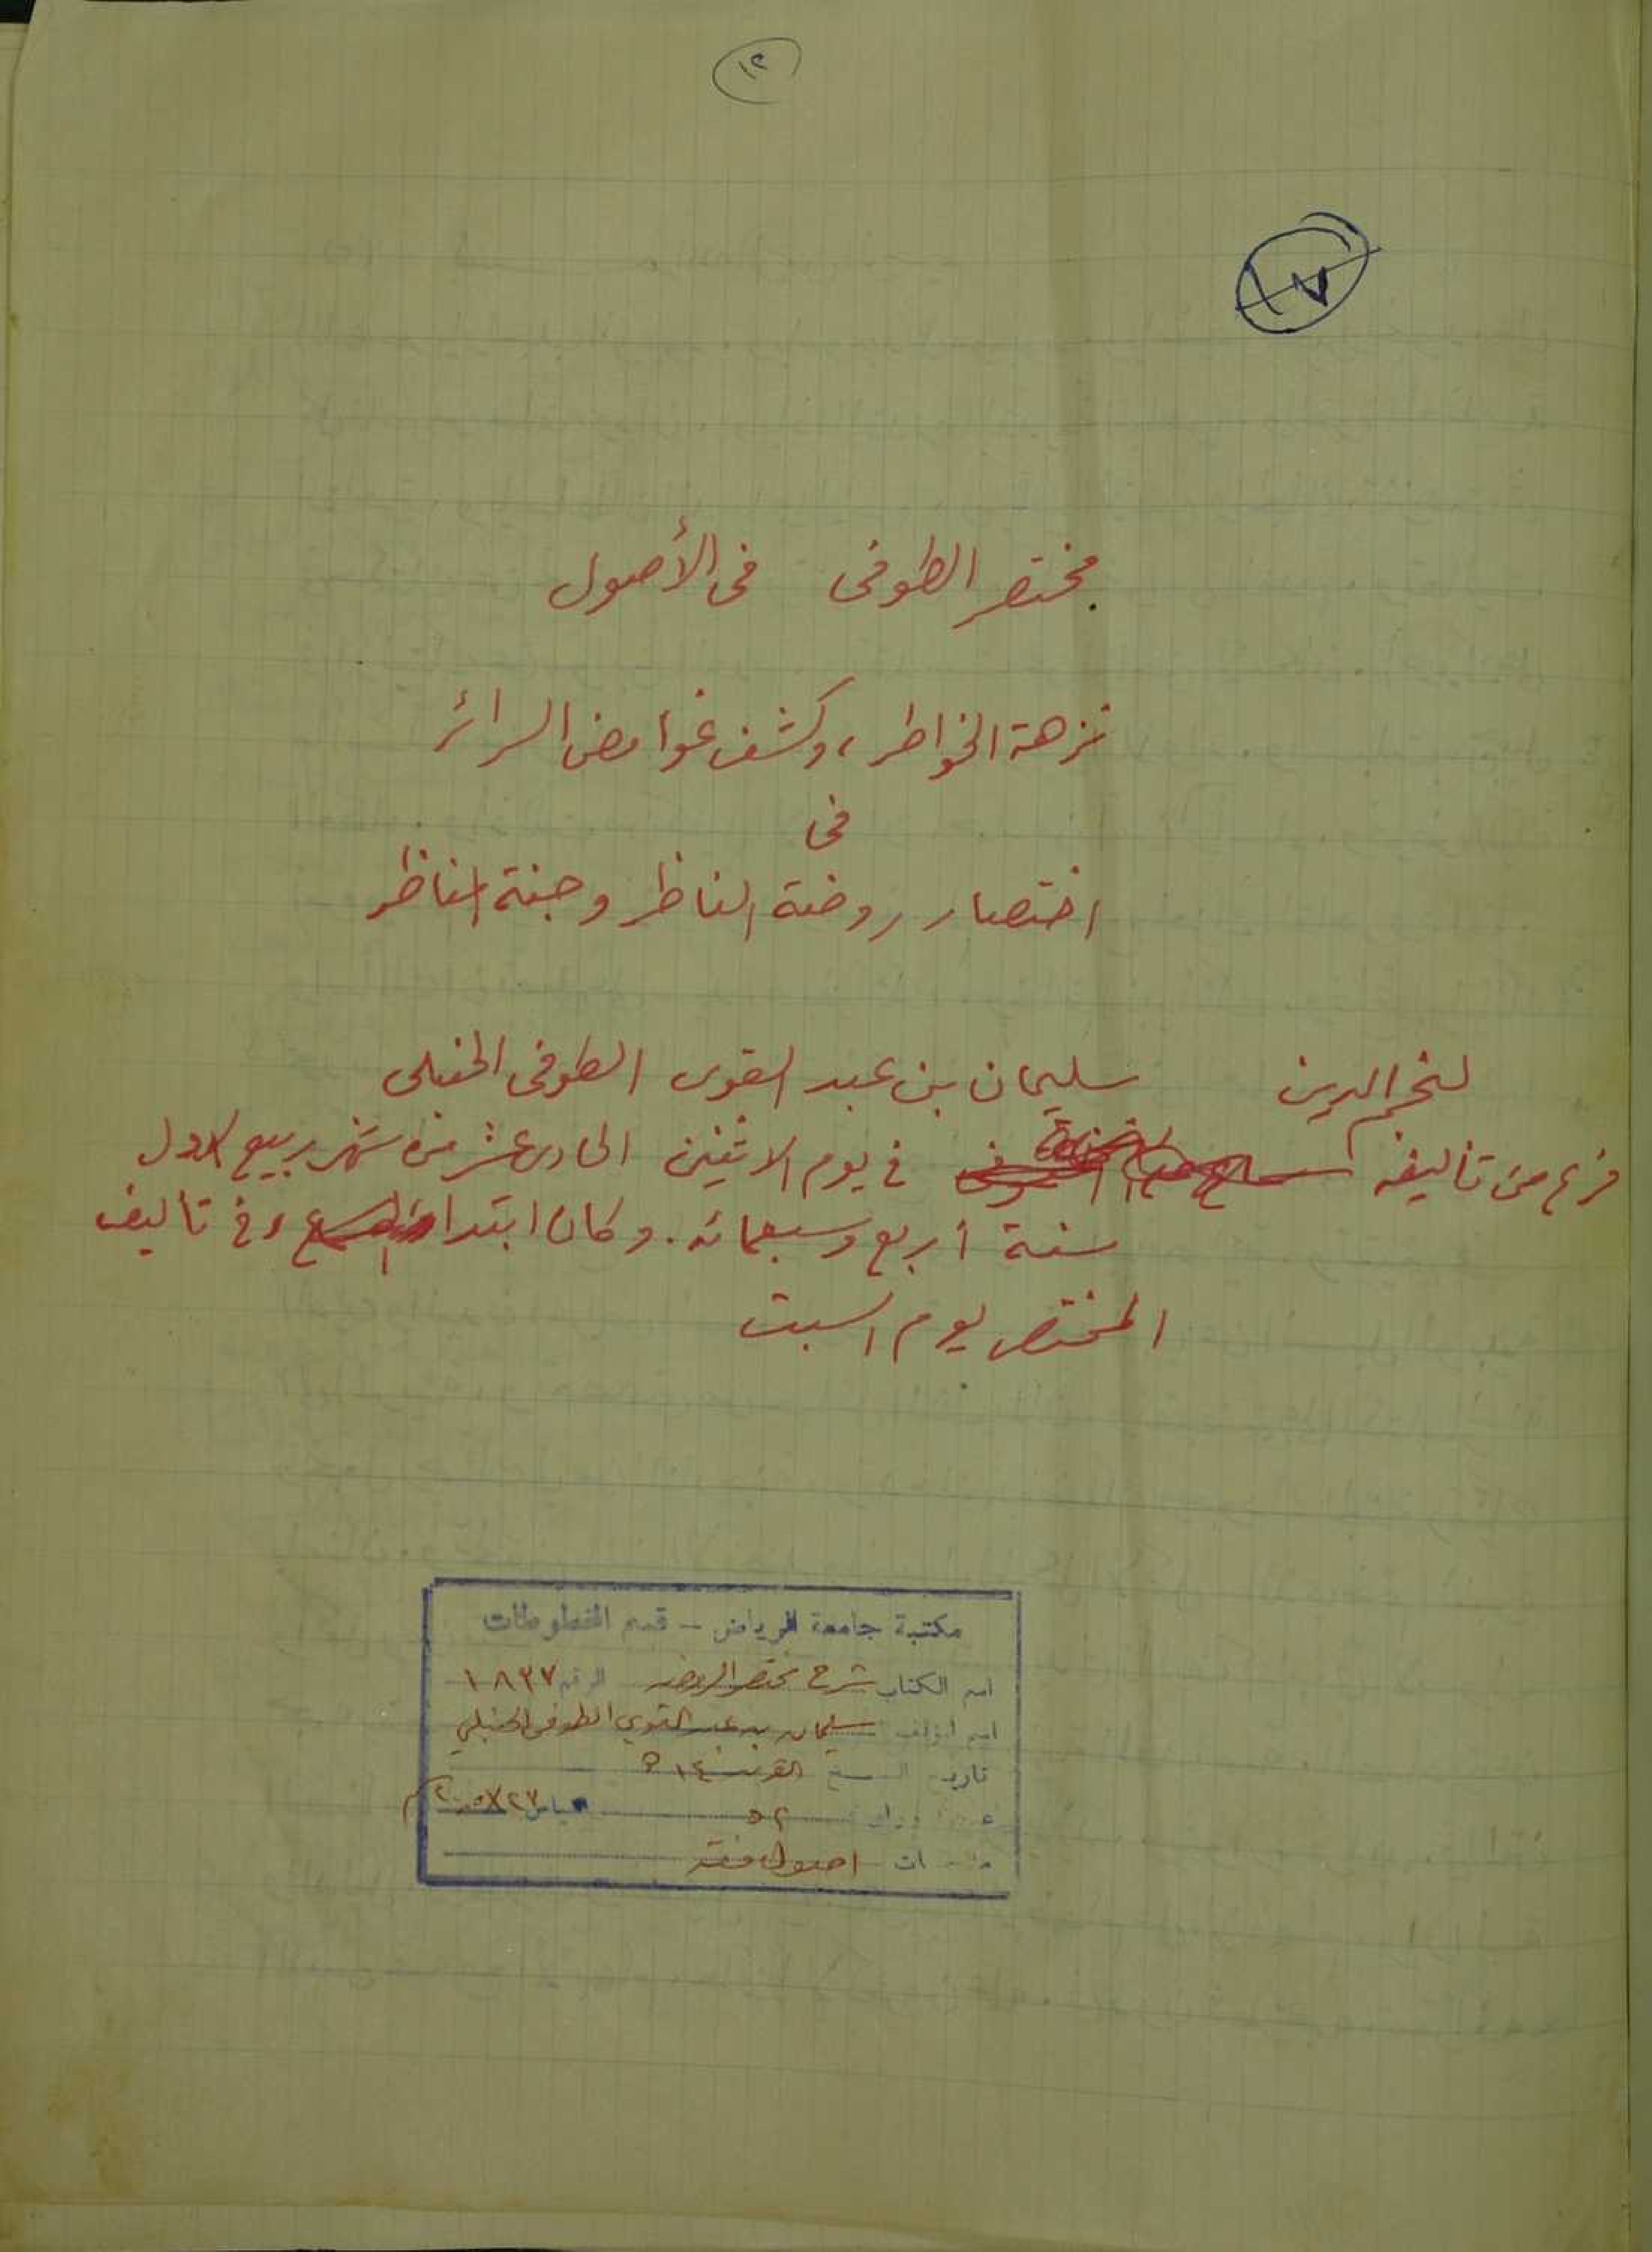 ١٢
مختصر الطوفى فى الأصول
نزهة الخواطر، وكشف غوامض السرائر
فى
اختصار روضة الناظر وجنة الناظر
لنجم الدين سليمان بن عبد القوى الطوفى الحنبلى
فرغ من تأليفه فى يوم الاثنين الحادى عشر من شهر ربيع الاول
سنة أربع وسبعمائه . وكان ابتدا فى تأليف
المختصر يوم السبت
مكتبة جامعة الرياض - قسم المخطوطات
اسم الكتاب شرح مختصر الروضه الرقم ١٨٣٧
اسم المؤلف سليمان بن عبد القوي الطوفى الحنبلي
تاريخ النسخ القرن ١٤ هـ
٥٢
اصول فقه